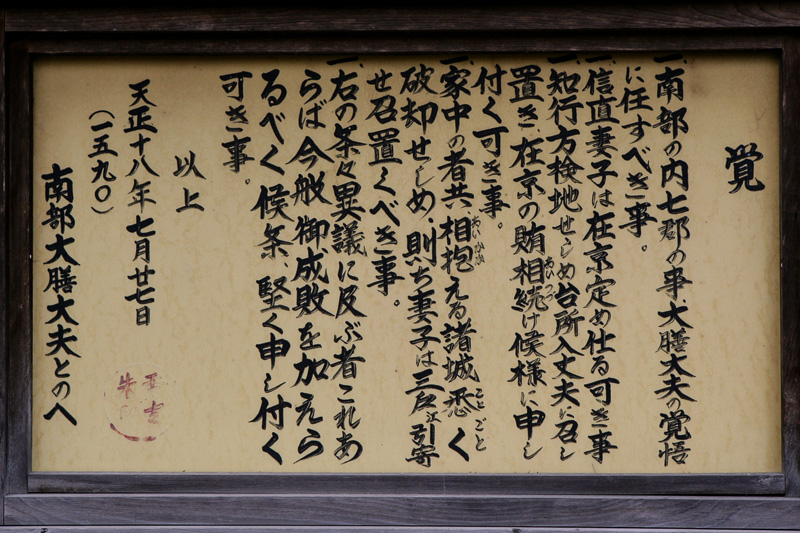 覚
一、南部の内七郡の事、大膳大夫の覚悟
に任すべき事。
一、信直妻子は在京定め仕る可き事
一、知行方検地せしめ台所入丈夫に召し
置き、在京の賄相続け候様に申し
付く可き事。
一、家中の者共、相抱える諸城悉く
破却せしめ則ち妻子は三戸江引寄
せ召置くべき事。
一、右の条々異議に及ぶ者これあ
らば今般御成敗を加えら
るべく候条、堅く申し付く
可き事。
以上
天正十八年七月廿七日
(一五九〇)
南部大膳大夫とのへ